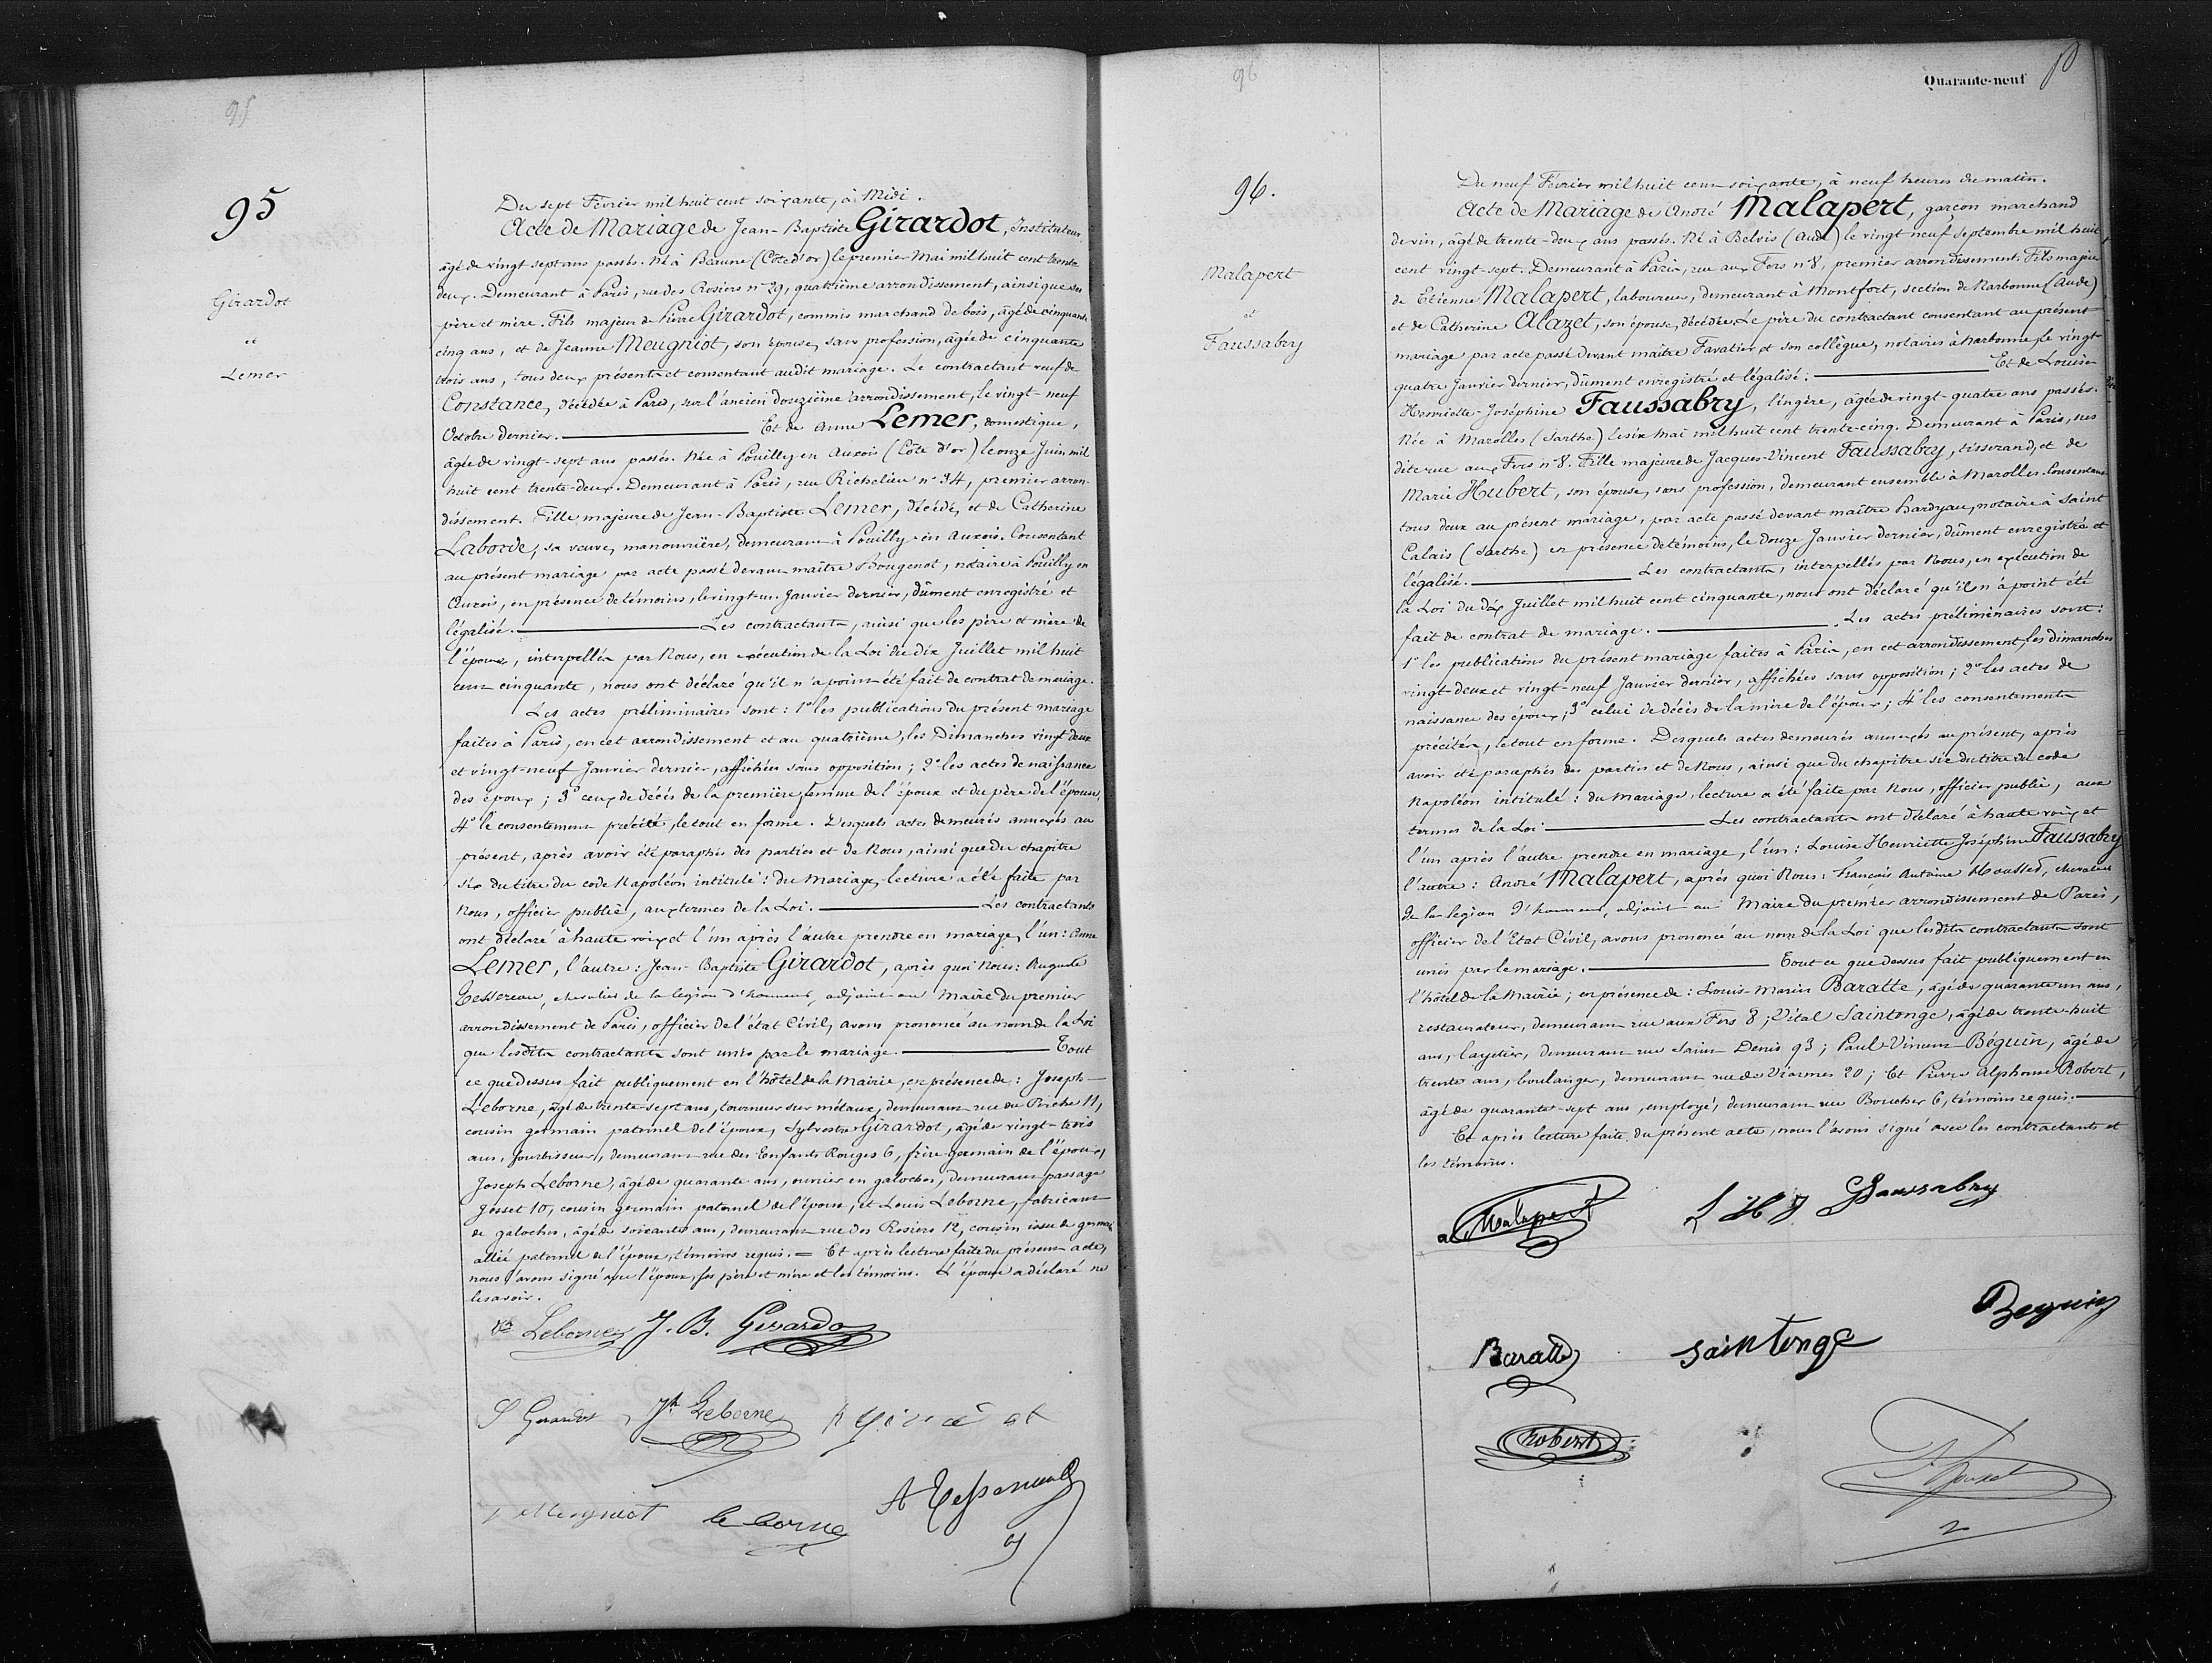 95
95
Girardot
et
Lemer
Du sept Février mil huit cent soixante, à Midi.
Acte de Mariage de Jean-Baptiste Girardot, Instituteur
âgé de vingt sept ans passés. Né à Beaune (Côte d'or) le premier Mai mil huit cent trente
deux. Demeurant à Paris, rue des Rosiers n° 29, quatrième arrondissement, ainsi que ses
père et mère. Fils majeur de Pierre Girardot, commis marchand de bois, âgé de cinquante
cinq ans, et de Jeanne Meugniot, son épouse, sans profession, âgée de cinquante
trois ans, tous deux présents et consentant audit mariage. Le contractant veuf de
Constance, décédée à Paris, sur l'ancien douzième arrondissement, le vingt-neuf
Octobre dernier. Et de Anne Lemer, domestique,
âgée de vingt-sept ans passés. Née à Pouilly en Auxois (Côte d'or) le onze Juin mil
huit cent trente-deux. Demeurant à Paris, rue Richelieu n° 34, premier arron-
dissement. Fille majeure de Jean-Baptiste Lemer, décédé, et de Catherine
Laborde, sa veuve, manouvrière, demeurant à Pouilly-en Auxois. Consentant
au présent mariage par acte passé devant maître Bougenot, notaire à Pouilly en
Auxois, en présence de témoins, le vingt-un Janvier dernier, dûment enregistré et
légalisé. Les contractants, ainsi que les père et mère de
l'époux, interpellés par Nous, en exécution de la Loi du dix Juillet mil huit
cent cinquante, nous ont déclaré qu'il n'a point été fait de contrat de mariage.
Les actes préliminaires sont: 1° les publications du présent mariage
faites à Paris, en cet arrondissement et au quatrième, les Dimanches vingt deux
et vingt-neuf Janvier dernier, affichées sans opposition; 2° les actes de naissance
des époux; 3° ceux de décès de la première femme de l'époux et du père de l'épouse,
4° le consentement précité, le tout en forme. Desquels actes demeurés annexés au
présent, après avoir été paraphés des parties et de Nous, ainsi que du chapitre
six du titre du code Napoléon intitulé: du Mariage, lecture a été faite par
Nous, officier public, aux termes de la Loi. Les contractants
ont déclaré à haute voix et l'un après l'autre prendre en mariage, l'un: Anne
Lemer, l'autre: Jean-Baptiste Girardot, après quoi Nous: Auguste
Tessereau, chevalier de la légion d'honneur, adjoint au Maire du premier
arrondissement de Paris, officier de l'état Civil, avons prononcé au nom de la Loi
que lesdits contractants sont unis par le mariage. Tout
ce que dessus fait publiquement en l'hôtel de la Mairie, en présence de: Joseph
Leborne, âgé de trente-sept ans, tourneur sur métaux, demeurant rue du Perche 11,
cousin germain paternel de l'époux, Sylvestre Girardot, âgé de vingt-trois
ans, fourbisseur, demeurant rue des Enfants Rouges 6, frère germain de l'époux,
Joseph Leborne, âgé de quarante ans, ouvrier en galoches, demeurant passage
Josset 10, cousin germain paternel de l'époux, et Louis Leborne, fabricant
de galoches, âgé de soixante ans, demeurant rue des Rosiers 12, cousin issu de germain
allié paternel de l'époux, témoins requis. = Et après lecture faite du présent acte,
nous l'avons signé avec l'époux, ses père et mère et les témoins. L'épouse a déclaré ne
le savoir.
Leborne J. B. Girardot
S Girardot Jh Leborne
Meugniot le borne A Tessereau
96
Quarante-neuf
96.
Malapert
et
Faussabry
Du neuf Février mil huit cent soixante, à neuf heures du matin.
Acte de Mariage de André Malapert, garçon marchand
de vin, âgé de trente-deux ans passés. Né à Belvis (Aude) le vingt neuf Septembre mil huit
cent vingt-sept. Demeurant à Paris, rue aux Fers n° 8, premier arrondissement. Fils majeur
de Etienne Malapert, laboureur, demeurant à Montfort, section de Narbonne (Aude)
et de Catherine Alazet, son épouse, décédée. Le père du contractant consentant au présent
mariage par acte passé devant maître Favatier et son collègue, notaires à Narbonne, le vingt-
quatre Janvier dernier, dûment enregistré et légalisé. Et de Louise
Henriette-Joséphine Faussabry, lingère, âgée de vingt-quatre ans passés.
Née à Marolles (Sarthe) le six Mai mil huit cent trente-cinq. Demeurant à Paris, sus
dite rue aux Fers n° 8. Fille majeure de Jacques-Vincent Faussabry, tisserand, et de
Marie Hubert, son épouse, sans profession, demeurant ensemble à Marolles. Consentant
tous deux au présent mariage, par acte passé devant maître Hardyau, notaire à Saint
Calais (Sarthe) en présence de témoins, le douze Janvier dernier, dûment enregistré et
légalisé. Les contractants, interpellés par Nous, en exécution de
la Loi du dix Juillet mil huit cent cinquante, nous ont déclaré qu'il n'a point été
fait de contrat de mariage. Les actes préliminaires sont:
1° les publications du présent mariage faites à Paris, en cet arrondissement, les dimanches
vingt-deux et vingt-neuf Janvier dernier, affichées sans opposition; 2° les actes de
naissance des époux; 3° celui de décès de la mère de l'époux; 4° les consentements
précités, le tout en forme. Desquels actes demeurés annexés au présent, après
avoir été paraphés des parties et de Nous, ainsi que du chapitre six du titre du code
Napoléon intitulé: du Mariage, lecture a été faite par Nous, officier public, aux
termes de la Loi Les contractants ont déclaré à haute voix et
l'un après l'autre prendre en mariage, l'un: Louise Henriette Joséphine Faussabry
l'autre: André Malapert, après quoi Nous: François Antoine Housset, chevalier
de la légion d'honneur, adjoint au Maire du premier arrondissement de Paris,
officier de l'Etat Civil, avons prononcé au nom de la Loi que lesdits contractants sont
unis par le mariage. Tout ce que dessus fait publiquement en
l'hôtel de la Mairie; en présence de: Louis-Marin Baratte, âgé de quarante un ans,
restaurateur, demeurant rue aux Fers 8; Vital Saintonge, âgé de trente-huit
ans, layetier, demeurant rue Saint Denis 93; Paul-Vincent Béguin, âgé de
trente ans, boulanger, demeurant rue de Viarmes 20; Et Pierre Alphonse Robert,
âgé de quarante-sept ans, employé, demeurant rue Boucher 6, témoins requis.
Et après lecture faite du présent acte, nous l'avons signé avec les contractants et
les témoins.
a Malapert L H J Faussabry
Beguin
Baratte saintonge
Robert